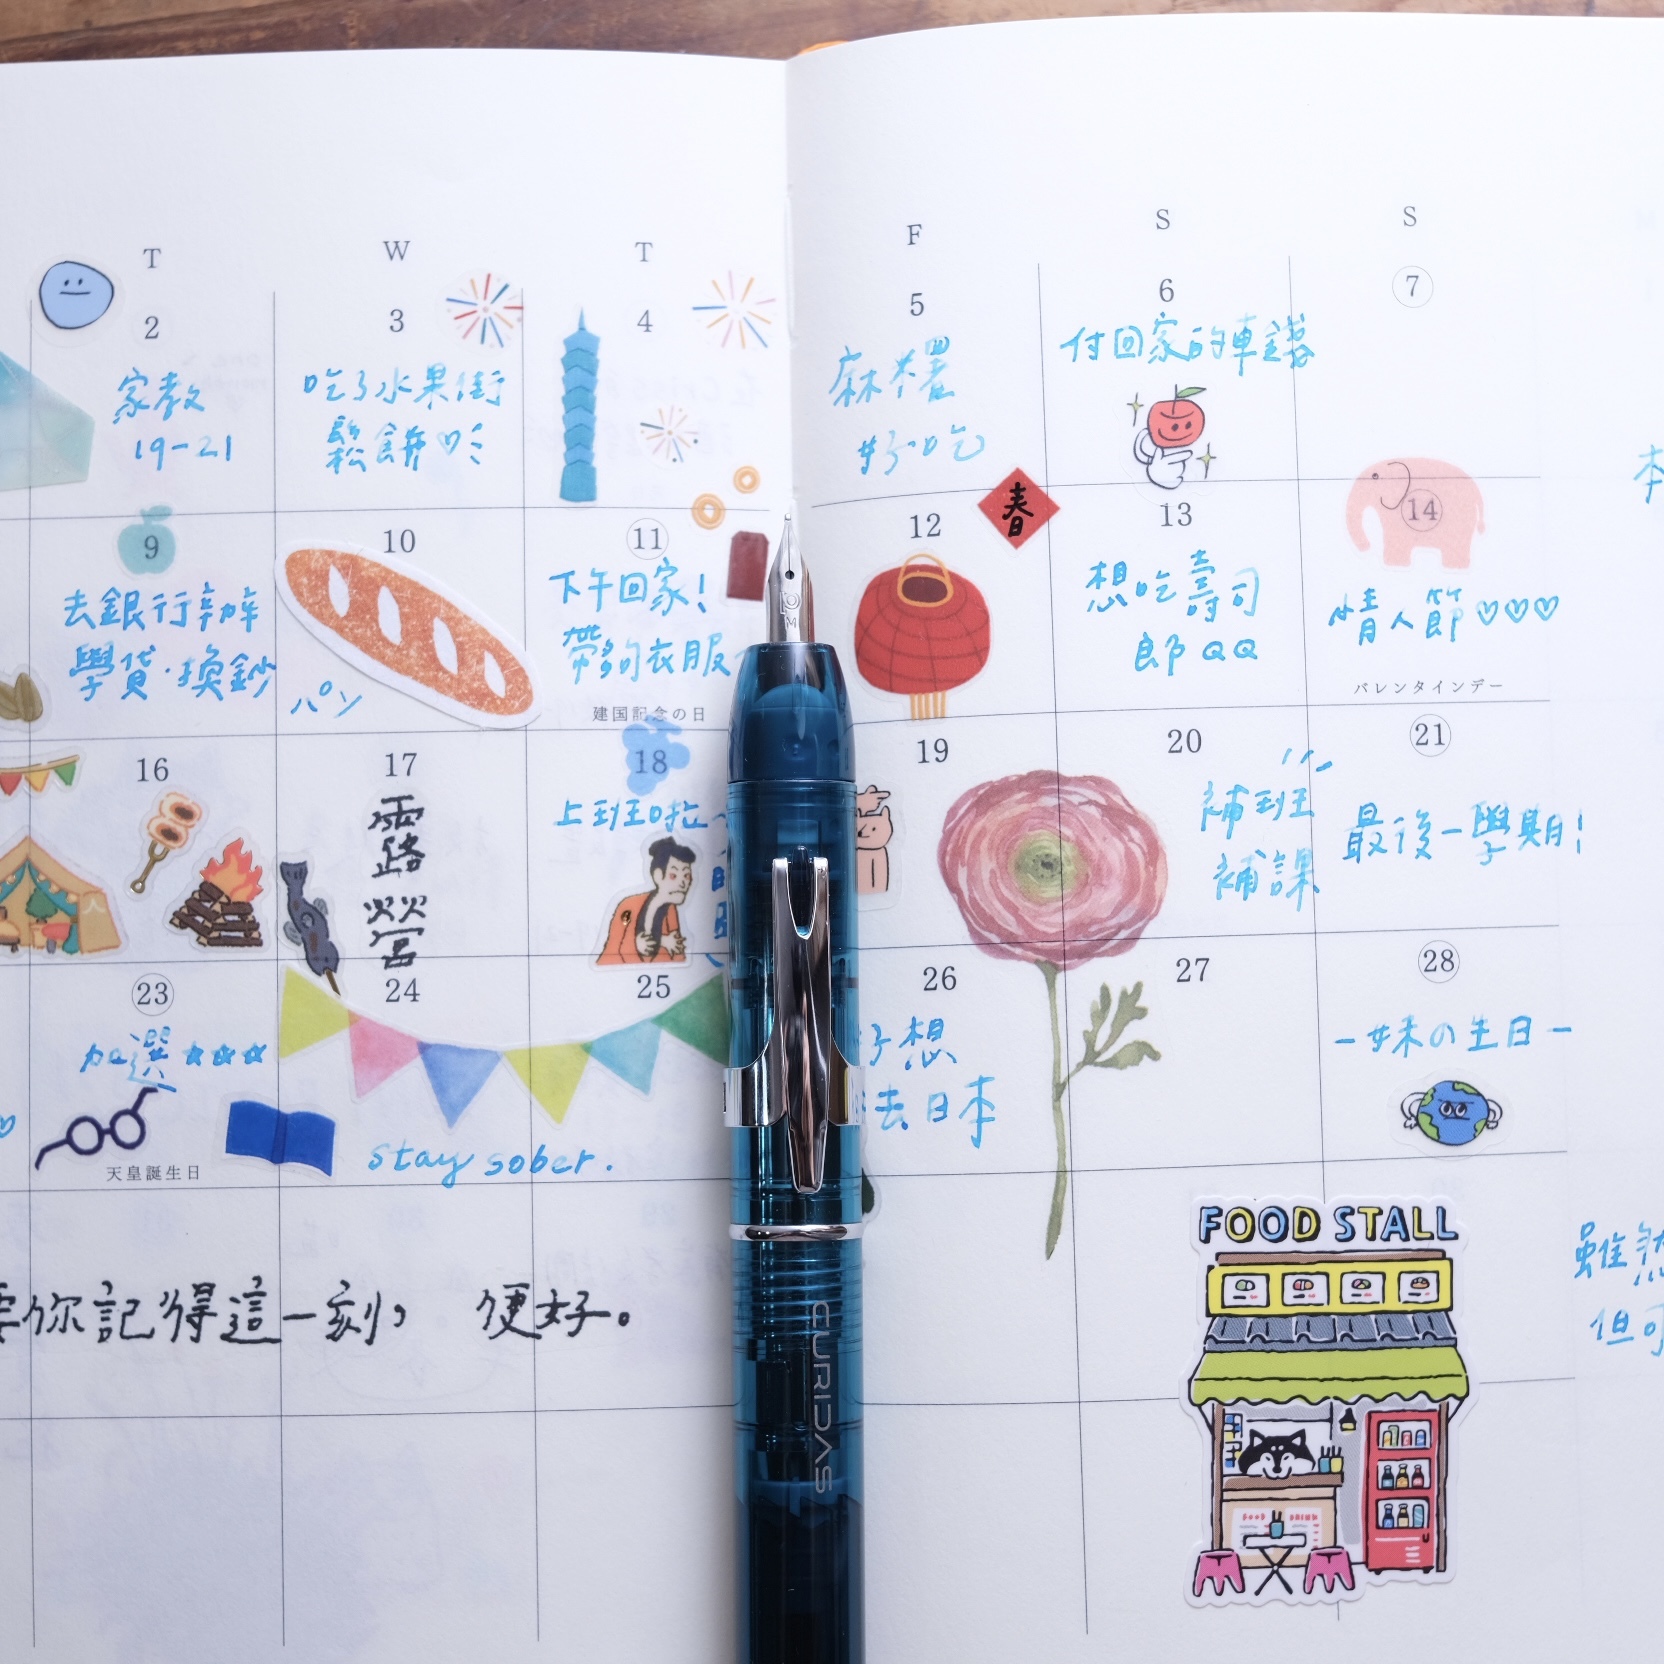 T
W
T
F
S
S
2
3
4
5
6
7
家教
19-21
吃了水果街
鬆餅♡
麻老
好吃
付回家的車錢
9
10
11
12
13
14
春
去銀行辦
學貸·換鈔
パン
下午回家!
帶夠衣服
建国記念の日
想吃壽司
郎QQ
情人節♡♡♡
バレンタインデー
16
17
18
19
20
21
露營
上班啦
補班
補課
最後一學期!
23
24
25
26
27
28
加選☆☆☆
天皇誕生日
stay sober.
好想
去日本
-妹の生日-
你記得這一刻, 便好。
雖然
但可
本
FOOD STALL
FOOD DRINK
CURIDAS
M